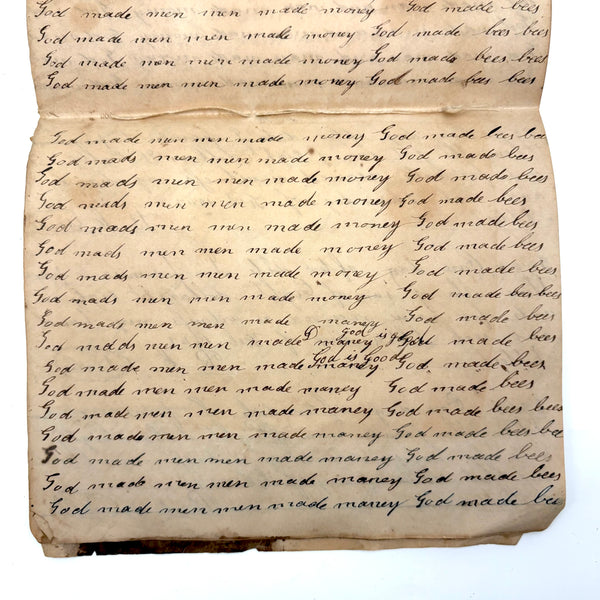 God made men men made money God made bees
God made men men made money God made bees bees
God made men men made money God made bees bees
God made men men made money God made bees bees
God made men men made money God made bees bees
God mads men men made money God made bees
God mads men men made money God made bees
God mads men men made money God made bees
God mads men men made money God made bees
God mads men men made money God made bees
God mads men men made money God made bees
God mads men men made money God made bees bees
God mads men men made maney God made bees
God is good
God mads men men made maney God made bees
God is Goode
God made men men made maney God made bees
God made men men made maney God made bees
God made men men made maney God made bees bees
God made men men made maney God made bees bee
God made men men made maney God made bees
God made men men made maney God made bees
God made men men made maney God made bees